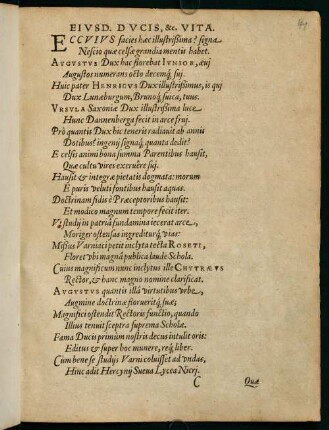 EIVSD. DVCIS, &c. VITA.
ECCVIVS facies hæc illustrissima? signa
Nescio quæ celsæ grandia mentis habet.
AVGVSTVS Dux hac fiorebat IVNIOR, æuj
Augustos numerans octo decemq; suj.
Huic pater HENRICVS Dux illustrißimus, is qui
Dux Lunæburgum, Brunoq; suica, tuus.
VRSVLA Saxoniæ Dux illustrißima luce
Hunc Dannenberga fecit in arce fruj.
Prò quantis Dux hic teneris radiauit ab annis
Dotibus! ingenij signaq; quanta dedit!
E celsi animi bona summa Parentibus hausit,
Quæ cultu vires exeruêre suas.
Hausit & integræ pietatis dogmata: morum
E puris veluti fontibus hausit aquas.
Doctrinam fidis è Præceptoribus hausit:
Et modico magnum tempore fecit iter.
Vt studij in patriâ fundamina iecerat arce,
Moriger ostensas ingrediturq; vias:
Missus Varniaci petit inclyta tecta ROSETI,
Floret vbi magnâ publica laude Schola.
Cuius magnificum nunc inclytus ille CHYTRÆVS
Rector, & hanc magno nomine clarificat.
AVGVSTVS quantis illâ virtutibus vrbe,
Augmine doctrinæ fioruêritq; suæ;
Magnifici ostendit Rectoris functio, quando
Illius tenuit sceptra suprema Scholæ.
Fama Ducis primùm nostris decus intulit oris:
Editus & super hoc munere, req; liber.
Cùm bene se studijs Varni coluisset ad vndas,
Hinc adit Hercynij Sueua Lycea Nicrj.
C Quæ